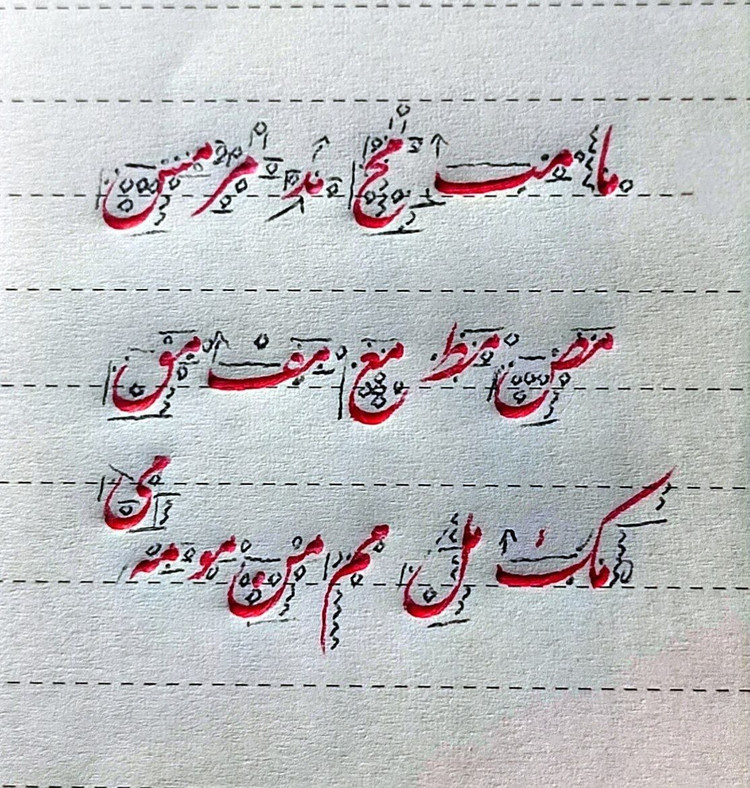 ما مب مح مد مر مس
مص مط مع مف مق
مک مل مم من مو مه
می